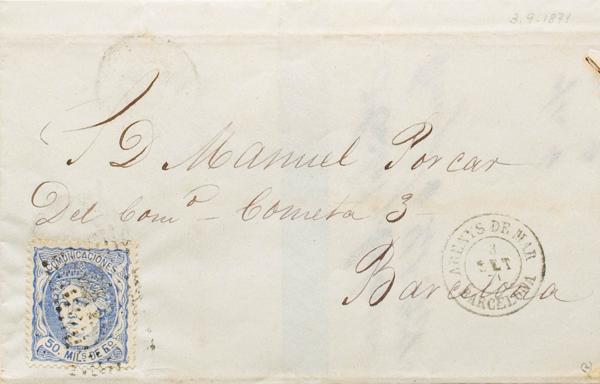 3.9.1871
S D Manuel Porcar
Del Com° - Cometa 3 -
Barcelona
ARENYS DE MAR
3
SET
71
BARCELONA
COMUNICACIONES
50. MILS DE Eo.